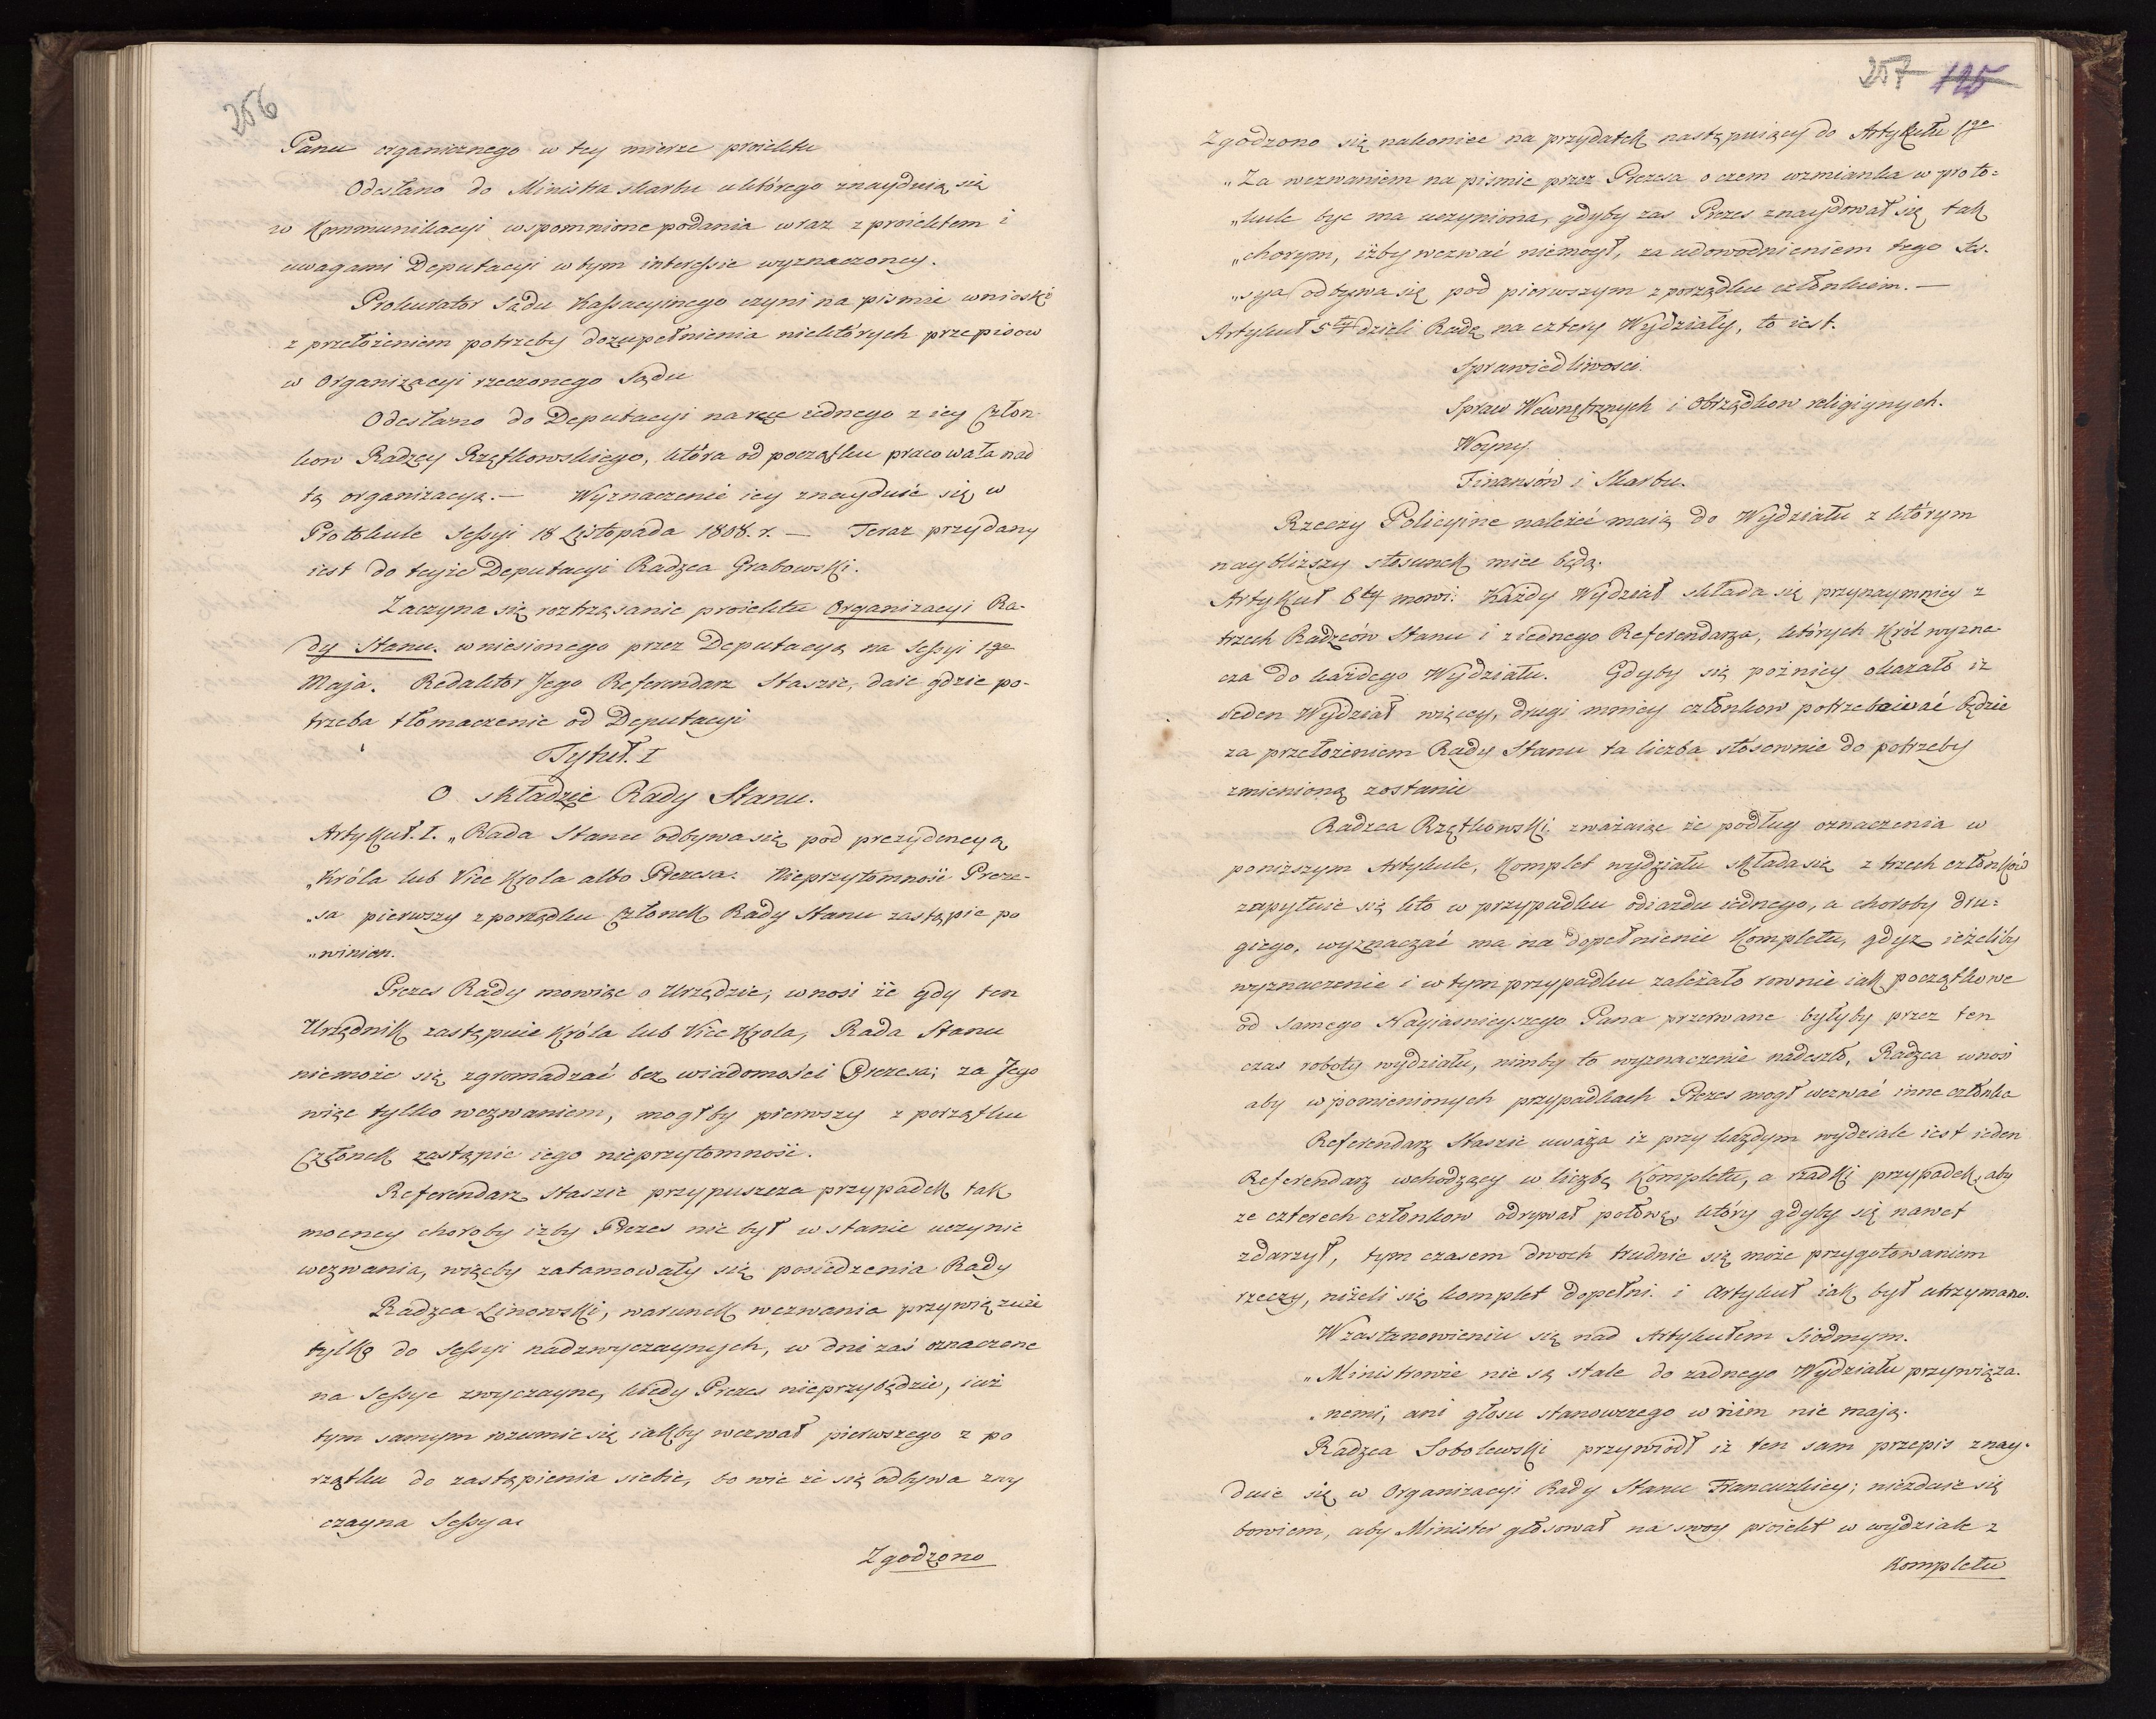 256
Panu organicznego w tey mierze proiektu
Odesłano do Ministra skarbu u którego znayduią się
w Kommunikacyi wspomnione podania wraz z proiektem i
uwagami Deputacyi w tym interessie wyznaczoney.
Prokurator Sądu Kassacyinego czyni na pismie wnioski
z przełożeniem potrzeby dozupełnienia niektórych przepisow
w Organizacyi rzeczonego Sądu
Odesłano do Deputacyi na ręce iednego z iey Człon-
kow Radzcy Rzętkowskiego, która od początku pracowała nad
tą organizacyą. — Wyznaczenie iey znayduie się w
Protokule Sessyi 18 Listopada 1808. r. — Teraz przydany
iest do teyże Deputacyi Radzca Grabowski.
Zaczyna się roztrząsanie proiektu Organizacyi Ra-
dy Stanu. wniesionego przez Deputacyą na Sessyi 1go
Maja. Redaktor Jego Referendarz Staszic, daie gdzie po-
trzeba tłomaczenie od Deputacyi
Tytuł. I
O składzie Rady Stanu.
Artykuł. I. „Rada Stanu odbywa się pod prezydencyą
„Króla lub Vice Krola albo Prezesa. Nieprzytomność Preze-
„sa pierwszy z porządku Członek Rady Stanu zastąpic po
„winien.
Prezes Rady mowiąc o Urzędzie, wnosi że gdy ten
Urzędnik zastępuie Króla lub Vice Krola, Rada Stanu
niemoże się zgromadzać bez wiadomości Prezesa; za Jego
więc tylko wezwaniem, mogłby pierwszy z porządku
Członek zastąpic iego nieprzytomność.
Referendarz Staszic przypuszcza przypadek tak
mocney choroby iżby Prezes nie był w stanie uczynic
wezwania, więcby zatamowały się posiedzenia Rady
Radzca Linowski, warunek wezwania przywięzuie
tylko do Sessyi nadzwyczaynych, w dni zaś oznaczone
na Sessye zwyczayne, kiedy Prezes nieprzybędzie, iuż
tym samym rozumie się iakby wezwał pierwszego z po
rządku do zastąpienia siebie, bo wie że się odbywa zwy
czayna Sessya
Zgodzono
257 125
Zgodzono się nakoniec na przydatek następuiący do Artykułu 1go
„Za wezwaniem na pismie przez Prezesa o czem wzmianka w proto=
„kule byc ma uczyniona, gdyby zas Prezes znaydował się tak
„chorym, iżby wezwać niemogł, za udowodnieniem tego Ses-
„sya odbywa się pod pierwszym z porządku członkiem. —
Artykuł 5ty dzieli Radę na cztery Wydziały, to iest.
Sprawiedliwosci.
Spraw Wewnętrznych i Obrządkow religiynych.
Woyny.
Finansów i Skarbu.
Rzeczy Policyine należeć maią do Wydziału z którym
naybliższy stosunek miec będą.
Artykuł 6ty mowi: Każdy Wydział składa się przynaymniey z
trzech Radzców Stanu i z iednego Referendarza, których Król wyzna
cza do każdego Wydziału. Gdyby się pozniey okazało iz
ieden Wydział więcey, drugi mniey członkow potrzebować będzie
za przełożeniem Rady Stanu ta liczba stosownie do potrzeby
zmienioną zostanie
Radzca Rzętkowski zważaiąc że podług oznaczenia w
poniższym Artykule, Komplet wydziału składa się z trzech członków
zapytuie się kto w przypadku odiazdu iednego, a choroby dru=
giego, wyznaczać ma na dopełnienie Kompletu, gdyz ieżeliby
wyznaczenie i w tym przypadku zależało rownie iak początkowe
od samego Nayiasnieyszego Pana przerwane byłyby przez ten
czas roboty wydziału, nimby to wyznaczenie nadeszło, Radzca wnosi
aby w pomienionych przypadkach Prezes mogł wezwać inne członka
Referendarz Staszic uważa iz przy każdym wydziale iest ieden
Referendarz wchodzący w liczbę Kompletu, a rzadki przypadek, aby
ze czterech członkow odrywał połowę, który gdyby się nawet
zdarzył, tym czasem dwoch trudnic się może przygotowaniem
rzeczy, niżeli się komplet dopełni. i Artykuł iak był utrzymano.
W zastanowieniu się nad Artykułem Siódmym.
„Ministrowie nie są stale do zadnego Wydziału przywiąza-
„nemi, ani głosu stanowczego w nim nie mają.
Radzca Sobolewski przywiodł iz ten sam przepis znay-
duie się w Organizacyi Rady Stanu Francuzkiey; niezdaie się
bowiem, aby Minister głosował na swoy proiekt w wydziale z
Kompletu